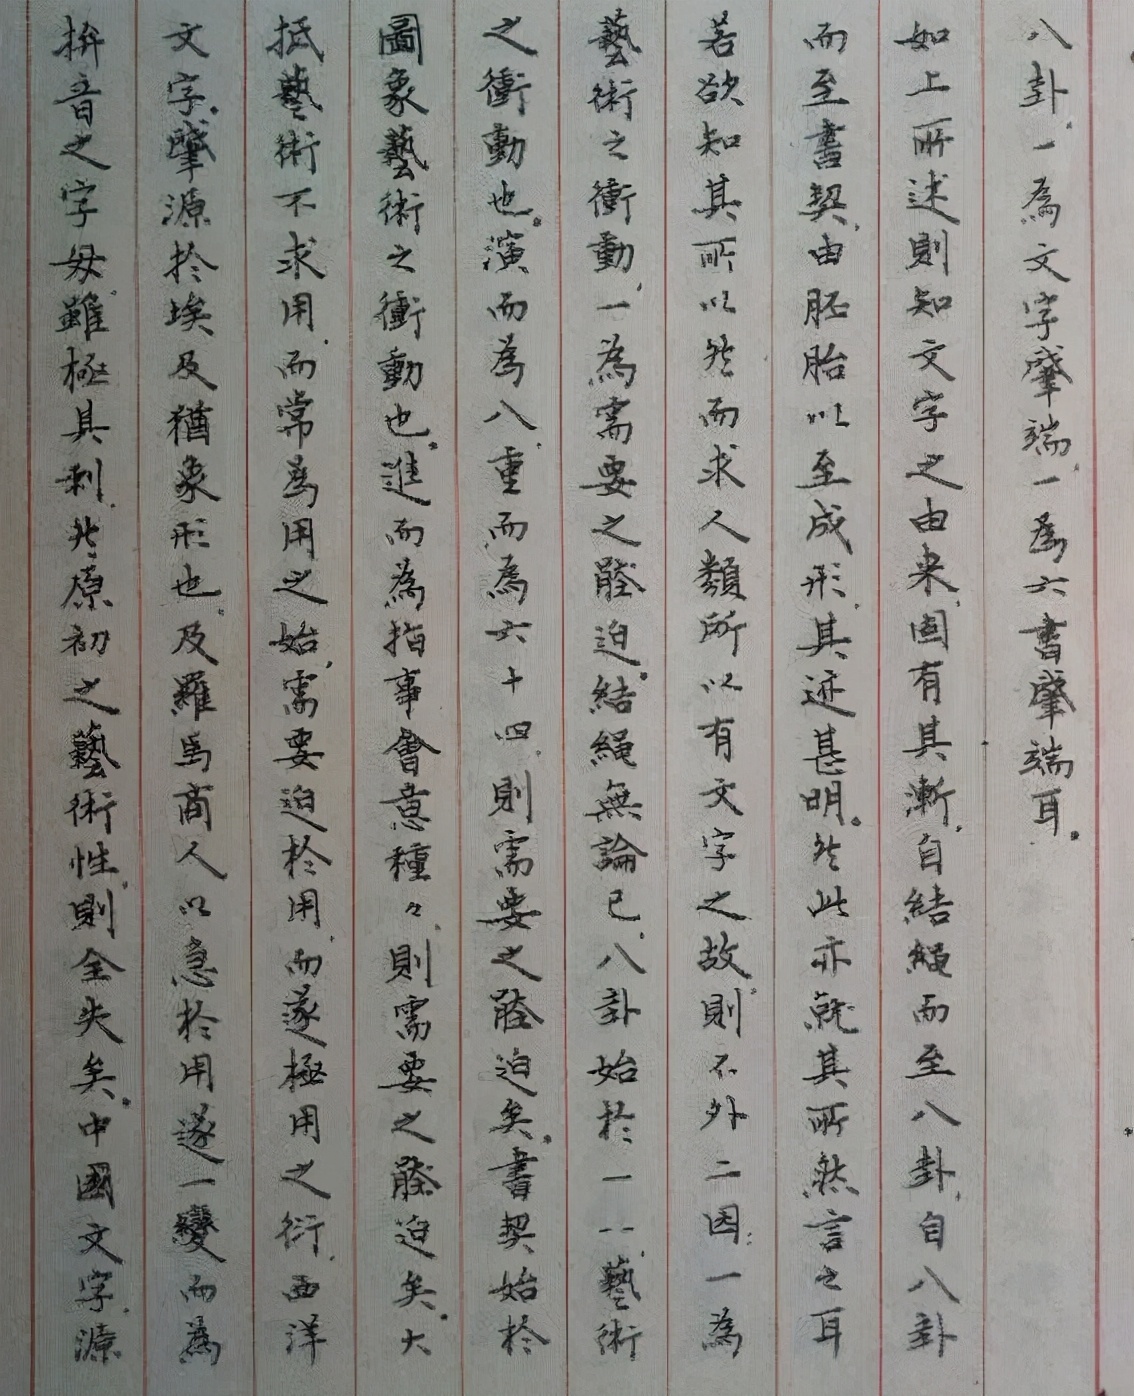 八卦、一為文字肇端、一為六書肇端耳。
如上所述則知文字之由来、固有其漸、自結繩而至八卦、自八卦
而至書契、由胚胎以至成形、其迹甚明。然此亦就其所然言之耳
若欲知其所以然而求人類所以有文字之故、則不外二因：一為
藝術之衝動、一為需要之逼迫。結繩無論已、八卦始於一 -- 、藝術
之衝動也。演而為八、重而為六十四、則需要之逼迫矣。書契始於
圖象藝術之衝動也。進而為指事會意種々、則需要之逼迫矣。大
抵藝術不求用、而常為用之始、需要迫於用、而遂極用之衍、西洋
文字。肇源於埃及猶象形也、及羅馬商人以急於用遂一變而為
拚音之字母、雖極具利、其原初之藝術性、則全失矣。中國文字、源